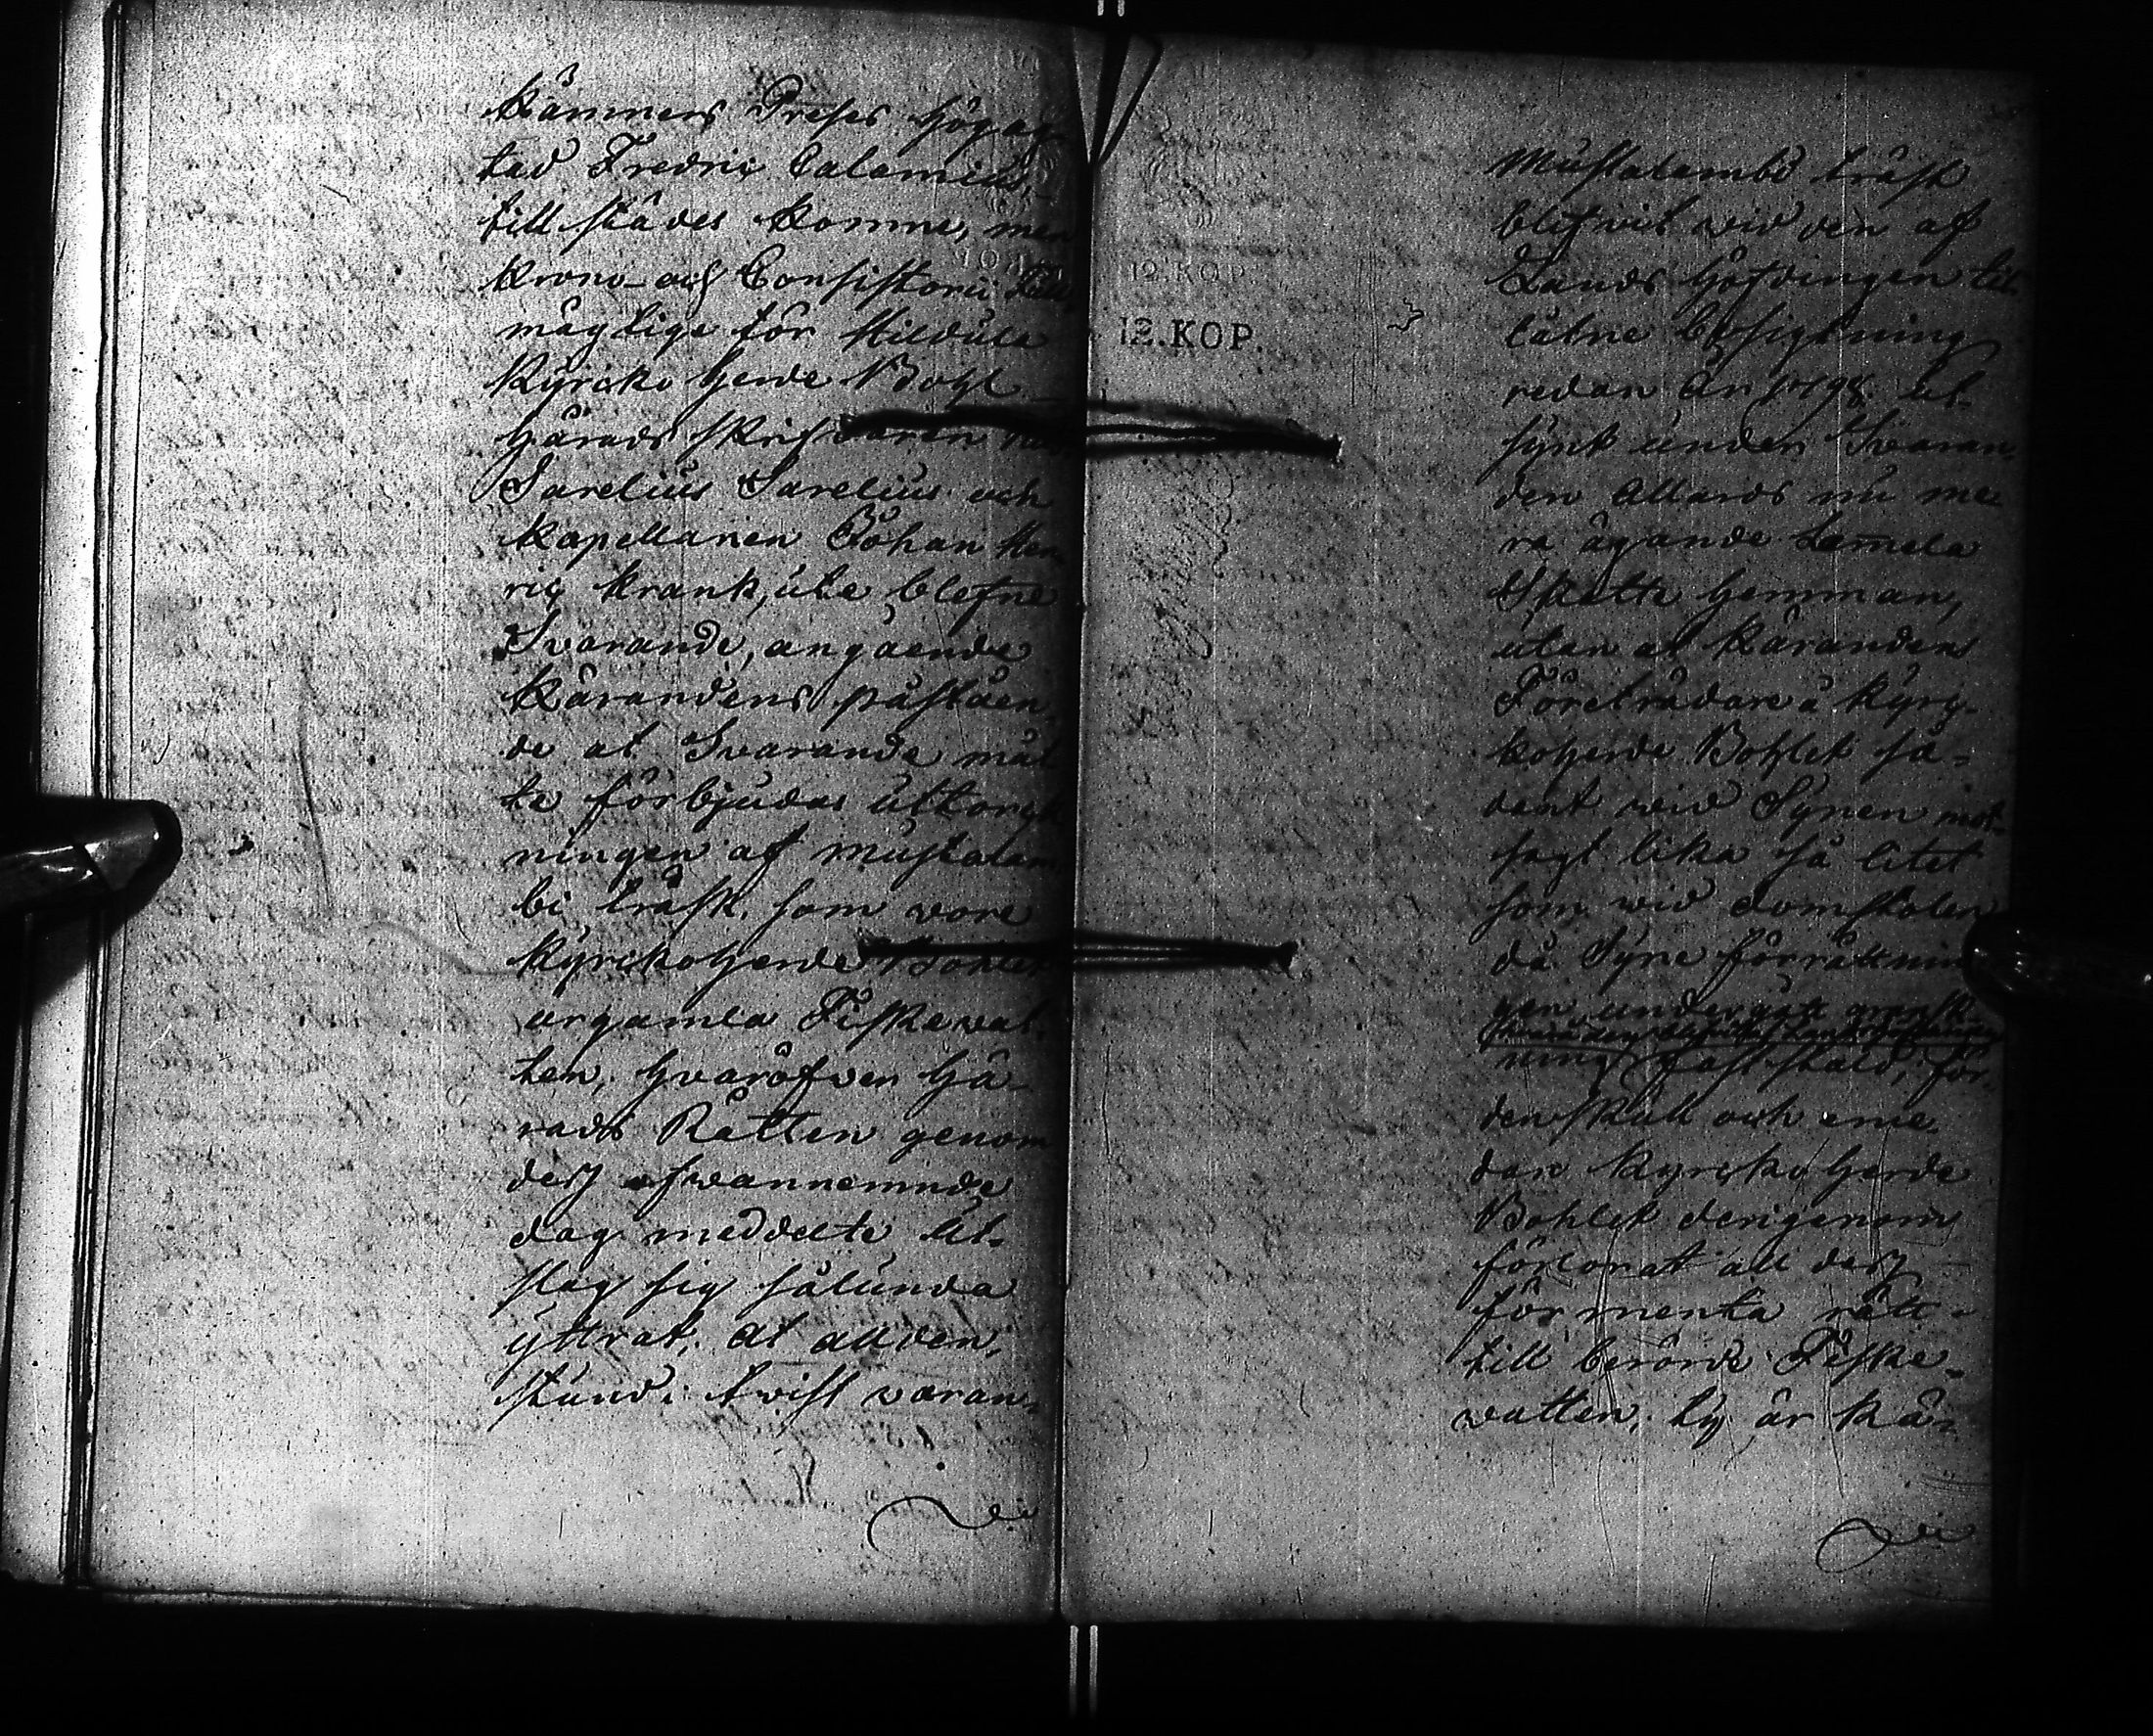 Kämners Preses Högag
tad Fredric Calamius,
till städes komne, men
Krono- och Consistorii
mägtige för Kildula
Kyrcko Herde Bohl
Härads skrifvaren
Sarelius Sarelius och
Kapellanen Johan Hen
ric Krank, ute blefne
Svarande, angående
Kärandens påståen
de at Svarande måt
te förbjudas uttorck
ningen af Mustalam
bi träsk, som vore
Kyrcko Herde Bohlet
urgamla Fiskevat
ten, hvaröfver Hä-
rads Rätten genom
dess ofvannemnde
dag meddelte Ut-
slag sig sålunda
yttrat, at allden
stund i tvist varan,
12.KOP.
12.KOP.
Mustalambi träsk
blifwit wid den af
Lands Höfdingen til
låtne besigtning
redan År 1798 ut
synt under Svaran
den Allards nu me
ra ägande Lamela
Skatte Hemman,
utan at Kärandens
Företrädare ä Kyrc-
koherde Bohlet så-
dant wid Synen mot-
sagt lika så litet
som wid domstolen
då Syne förrättnin
gen undergått gransk
ning fastställd, för
den skull och eme
dan Kyrcko Herde
Bohlet derigenom
förlorat all dess
förmenta rätt
till berörde Fiske-
vatten, ty är Kä-